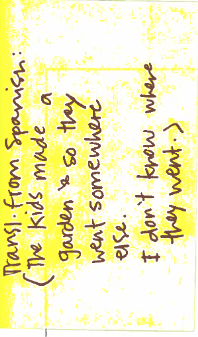 Transl. from Spanish:
(The kids made a
garden so they
went somewhere
else.
I don't know where
they went.)